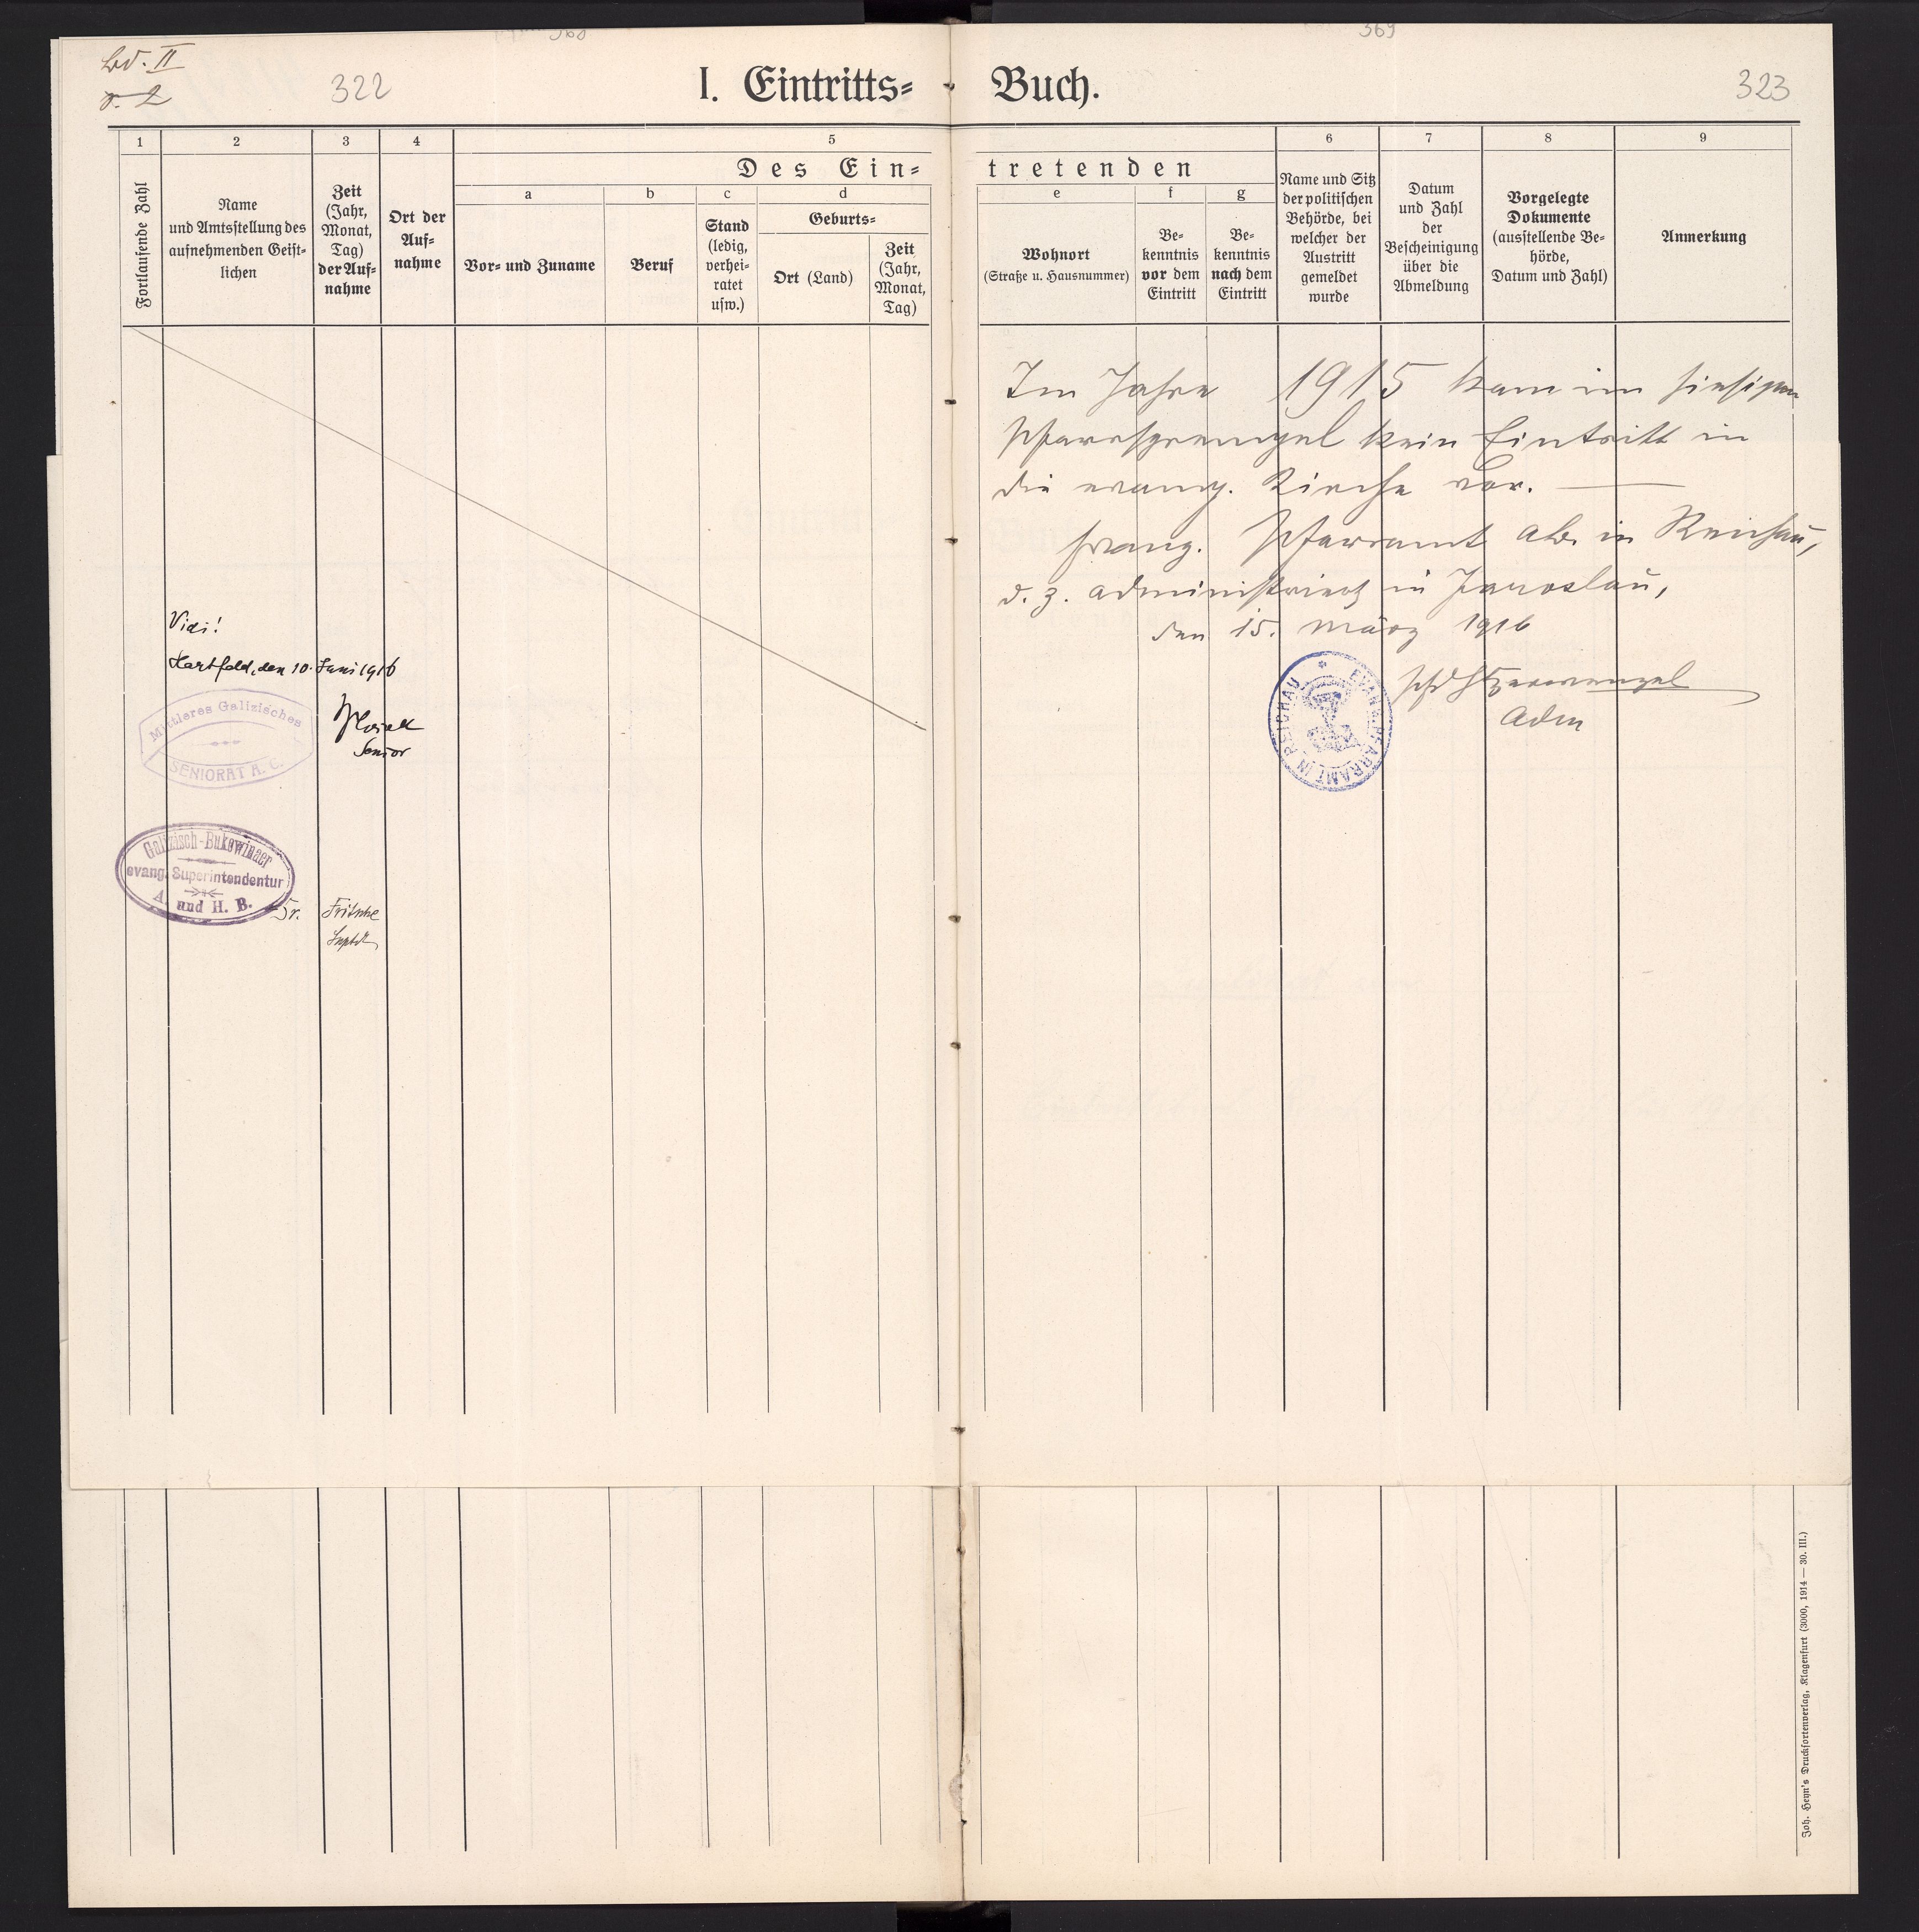 368
369
Bd. II
S. 2
322
I. Eintritts-
Buch.
323
1
2
3
4
5
6
7
8
9
Des Ein-
tretenden
a
b
c
d
e
f
g
Fortlaufende Zahl
Name
und Amtsstellung des
aufnehmenden Geist-
lichen
Zeit
(Jahr,
Monat,
Tag)
der Auf-
nahme
Ort der
Auf-
nahme
Vor- und Zuname
Beruf
Stand
(ledig,
verhei-
ratet
usw.)
Geburts-
Ort (Land)
Zeit
(Jahr,
Monat,
Tag)
Wohnort
(Straße u. Hausnummer)
Be-
kenntnis
vor dem
Eintritt
Be-
kenntnis
nach dem
Eintritt
Name und Sitz
der politischen
Behörde, bei
welcher der
Austritt
gemeldet
wurde
Datum
und Zahl
der
Bescheinigung
über die
Abmeldung
Vorgelegte
Dokumente
(ausstellende Be-
hörde,
Datum und Zahl)
Anmerkung
Im Jahre 1915 kam im hiesigen
Pfarrsprengel kein Eintritt in
die evang. Kirche vor.
Evang. Pfarramt A.B. in Reichau,
d. z. administriert in Jaroslau,
den 15. März 1916
Adm
EVANG. PFARRAMT IN REICHAU
Vidi!
Hartfeld, den 10. Juni 1916
Mittleres Galizisches
SENIORAT A. C.
Senior
Galizisch-Bukowinaer
evang. Superintendentur
A. und H. B.
Dr. Fritsche
Suptdt
Joh. Heyn's Drucksortenverlag, Klagenfurt (3000, 1914 — 30. III.)